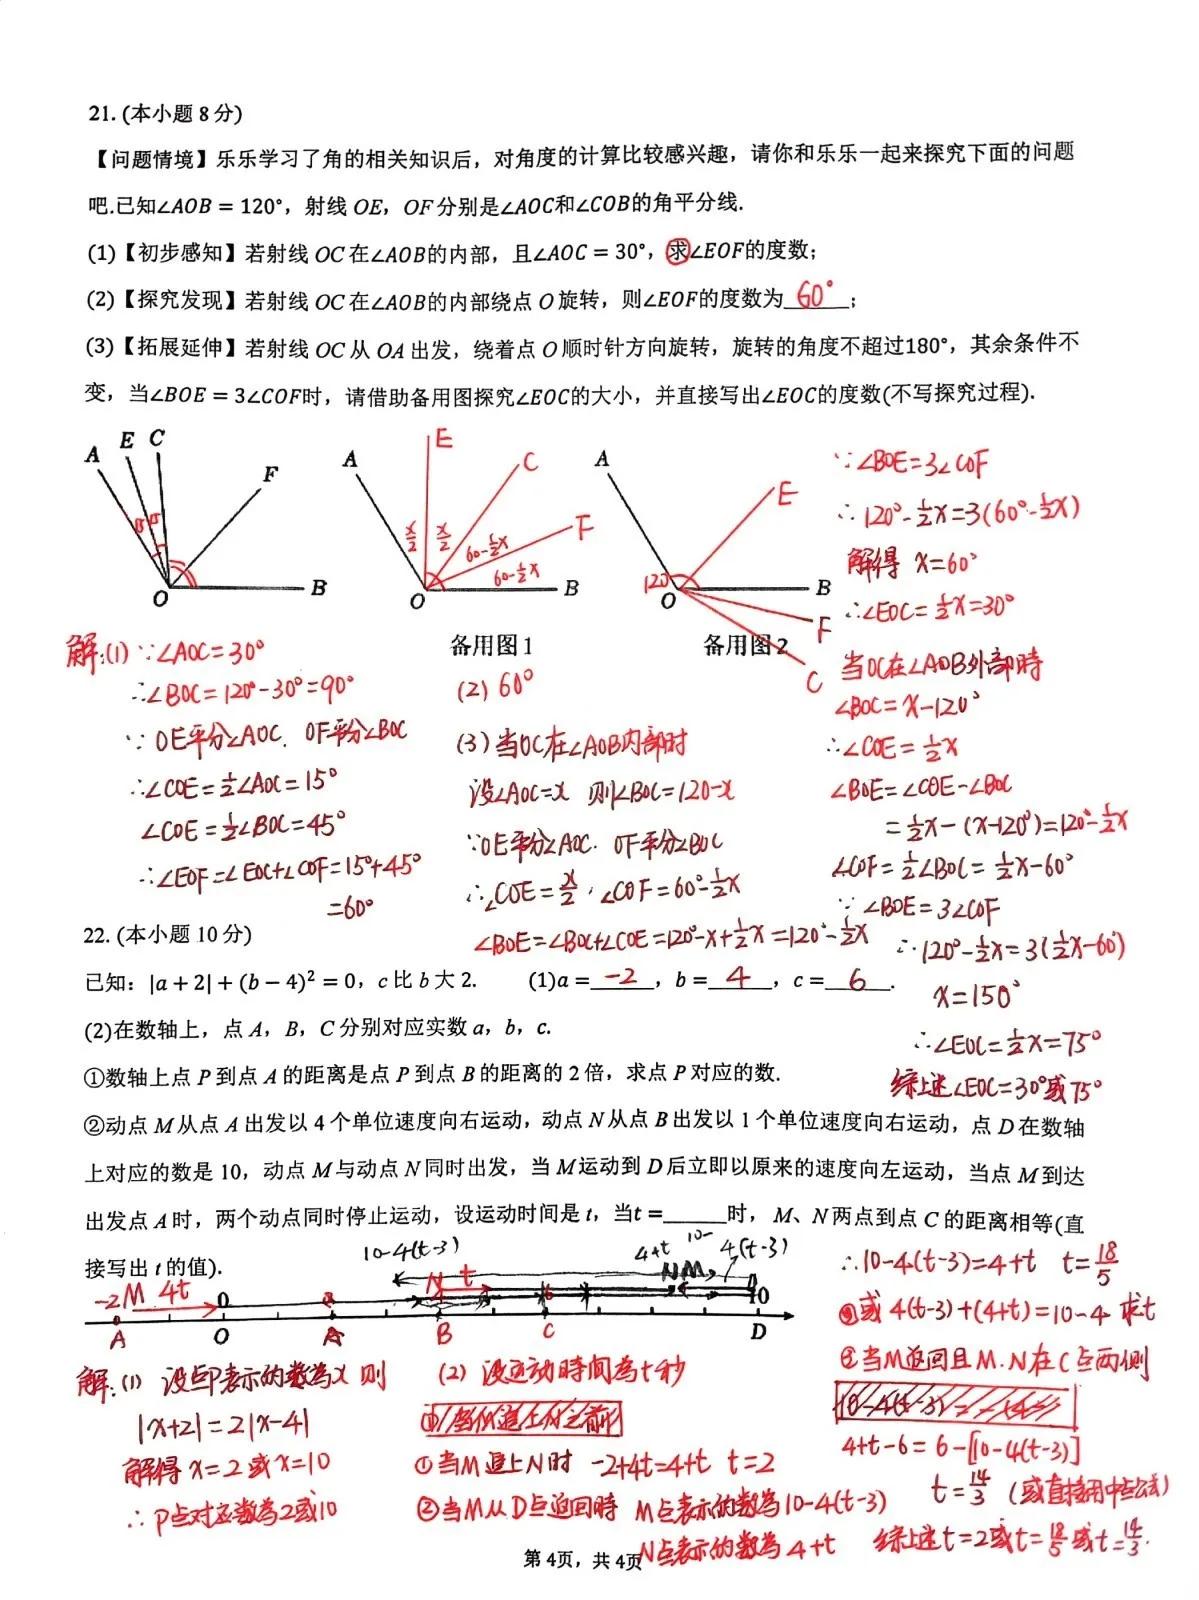 21. (本小题 8 分)
【问题情境】乐乐学习了角的相关知识后，对角度的计算比较感兴趣，请你和乐乐一起来探究下面的问题
吧.已知∠AOB = 120°，射线 OE，OF 分别是∠AOC和∠COB的角平分线.
(1)【初步感知】若射线 OC 在∠AOB的内部，且∠AOC = 30°，求∠EOF的度数；
(2)【探究发现】若射线 OC 在∠AOB的内部绕点 O 旋转，则∠EOF的度数为 60° ；
(3)【拓展延伸】若射线 OC 从 OA 出发，绕着点 O 顺时针方向旋转，旋转的角度不超过180°，其余条件不
变，当∠BOE = 3∠COF时，请借助备用图探究∠EOC的大小，并直接写出∠EOC的度数(不写探究过程).
A E C F O B
15 15
A E C F O B
x/2 x/2 60-1/2x 60-1/2x
备用图 1
A E B F C O
120
备用图 2
解:(1) ∵∠AOC=30°
∴∠BOC=120°-30°=90°
∵OE平分∠AOC. OF平分∠BOC
∴∠COE=1/2∠AOC=15°
∠COE=1/2∠BOC=45°
∴∠EOF=∠EOC+∠COF=15°+45°
=60°
(2) 60°
(3) 当OC在∠AOB内部时
设∠AOC=x 则∠BOC=120-x
∵OE平分∠AOC. OF平分∠BOC
∴∠COE=x/2. ∠COF=60°-1/2x
∠BOE=∠BOC+∠COE=120°-x+1/2x=120°-1/2x
∵∠BOE=3∠COF
∴120°-1/2x=3(60°-1/2x)
解得 x=60°
∴∠EOC=1/2x=30°
当OC在∠AOB外部時
∠BOC=x-120°
∴∠COE=1/2x
∠BOE=∠COE-∠BOC
=1/2x-(x-120°)=120°-1/2x
∠COF=1/2∠BOC=1/2x-60°
∵∠BOE=3∠COF
∴120°-1/2x=3(1/2x-60°)
x=150°
∴∠EOC=1/2x=75°
综上述∠EOC=30°或75°
22. (本小题 10 分)
已知：|a + 2| + (b − 4)² = 0，c 比 b 大 2. (1)a = -2 ，b = 4 ，c = 6 .
(2)在数轴上，点 A，B，C 分别对应实数 a，b，c.
①数轴上点 P 到点 A 的距离是点 P 到点 B 的距离的 2 倍，求点 P 对应的数.
②动点 M 从点 A 出发以 4 个单位速度向右运动，动点 N 从点 B 出发以 1 个单位速度向右运动，点 D 在数轴
上对应的数是 10，动点 M 与动点 N 同时出发，当 M 运动到 D 后立即以原来的速度向左运动，当点 M 到达
出发点 A 时，两个动点同时停止运动，设运动时间是 t，当t =_____时，M、N 两点到点 C 的距离相等(直
接写出 t 的值).
10-4(t-3) 4+t 10- 4(t-3)
-2 M 4t 0 N t N M 10
A O A B C D
解:(1) 设点P表示的数為x 则
|x+2|=2|x-4|
解得 x=2 或 x=10
∴P点对应数為2或10
(2) 设运动時间為t秒
①当M追上N时 -2+4t=4+t t=2
②当M从D点返回時 M点表示的数為10-4(t-3)
N点表示的数為4+t
∴10-4(t-3)=4+t t=18/5
或 4(t-3)+(4+t)=10-4 求t
②当M返回且M.N在C点两侧
4+t-6=6-[10-4(t-3)]
t=14/3 (或直接用中点公式)
综上述t=2或t=18/5或t=14/3.
第 4页，共 4页